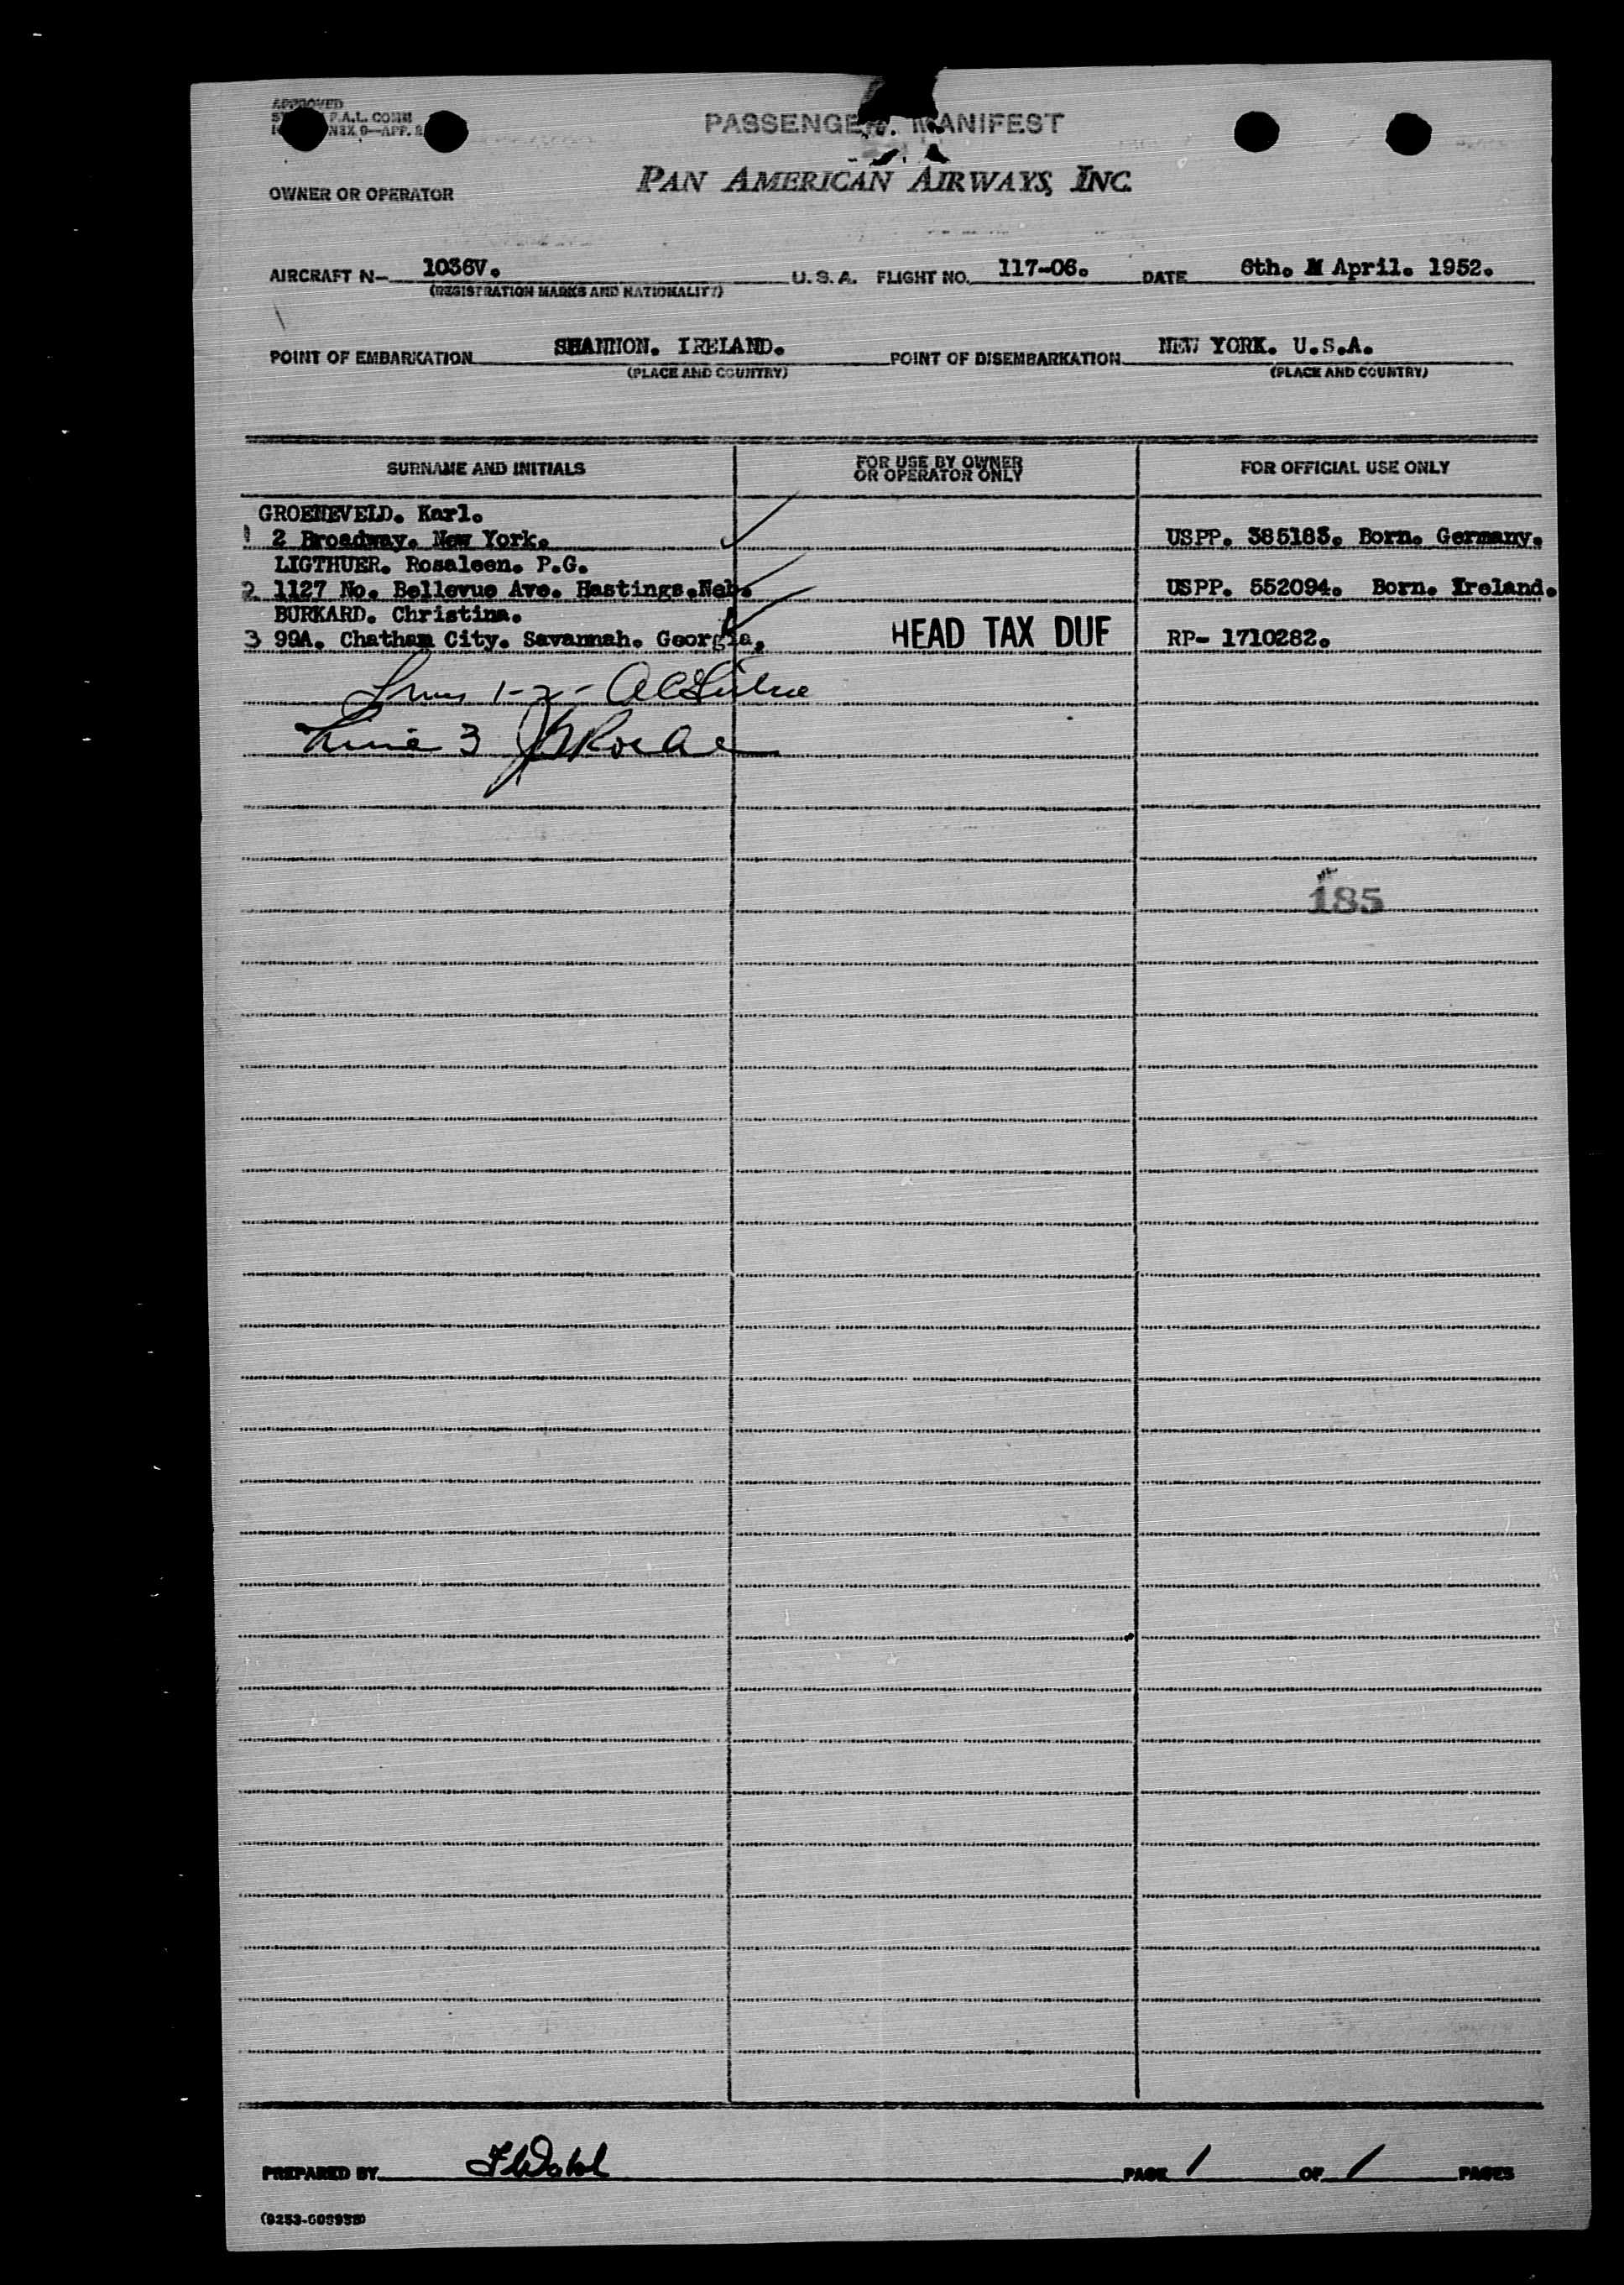 APPROVED
F.A.L. COMM
NEX 9—APP.
PASSENGER MANIFEST
OWNER OR OPERATOR
PAN AMERICAN AIRWAYS, INC.
AIRCRAFT N— 1036V. U.S.A. FLIGHT NO. 117-06. DATE 6th. M April. 1952.
(REGISTRATION MARKS AND NATIONALITY)
POINT OF EMBARKATION SHANNON. IRELAND. POINT OF DISEMBARKATION NEW YORK. U.S.A.
(PLACE AND COUNTRY) (PLACE AND COUNTRY)
SURNAME AND INITIALS FOR USE BY OWNER OR OPERATOR ONLY FOR OFFICIAL USE ONLY
GROENEVELD. Karl.
1 2 Broadway. New York. USPP. 385183. Born. Germany.
LIGTHUER. Rosaleen. P.G.
2 1127 No. Bellevue Ave. Hastings.Neb. USPP. 552094. Born. Ireland.
BURKARD. Christina.
3 99A. Chatham City. Savannah. Georgia. HEAD TAX DUE RP- 1710282.
Lines 1-2-
Line 3 Roche
185
PREPARED BY PAGE 1 OF 1 PAGES